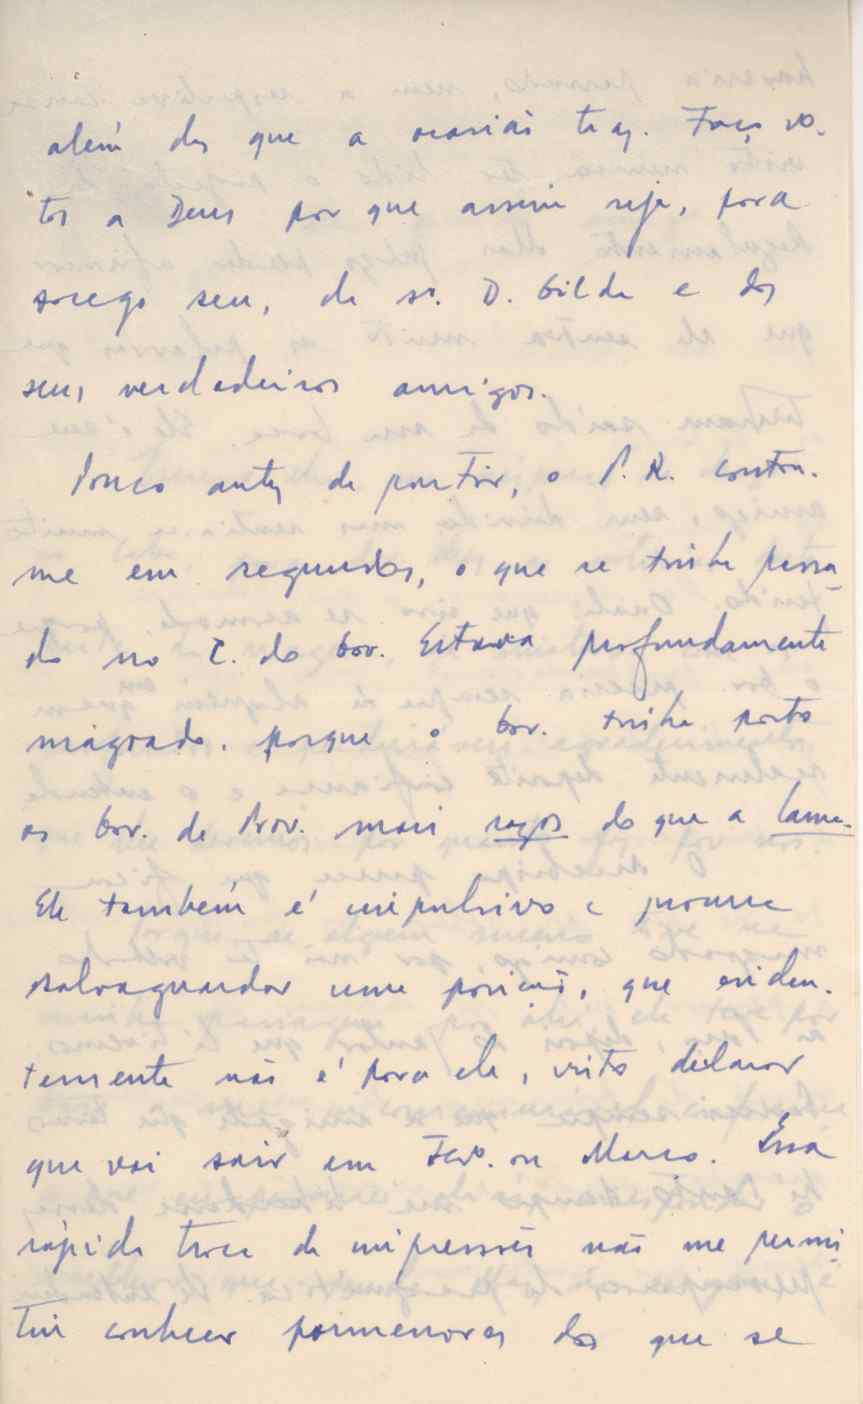 além dos que a ocasião traz. Faço vo-
tos a Deus por que assim seja, para
socego seu, da sr. D. Gilda e dos
seus verdadeiros amigos.
Pouco antes de partir, o P. R. contou-
me em segundos, o que se tinha passa-
do no C. do Gov. Estava profundamente
magoado, porque o Gov. tinha posto
os Gov. de Prov. mais rasos do que a lama.
Ele também é impulsivo e procura
salvaguardar uma posição, que eviden-
temente não é para ele, visto declarar
que vai sair em Fevo. ou Março. Essa
rápida troca de impressões não me permi-
tiu conhecer pormenores dos que se